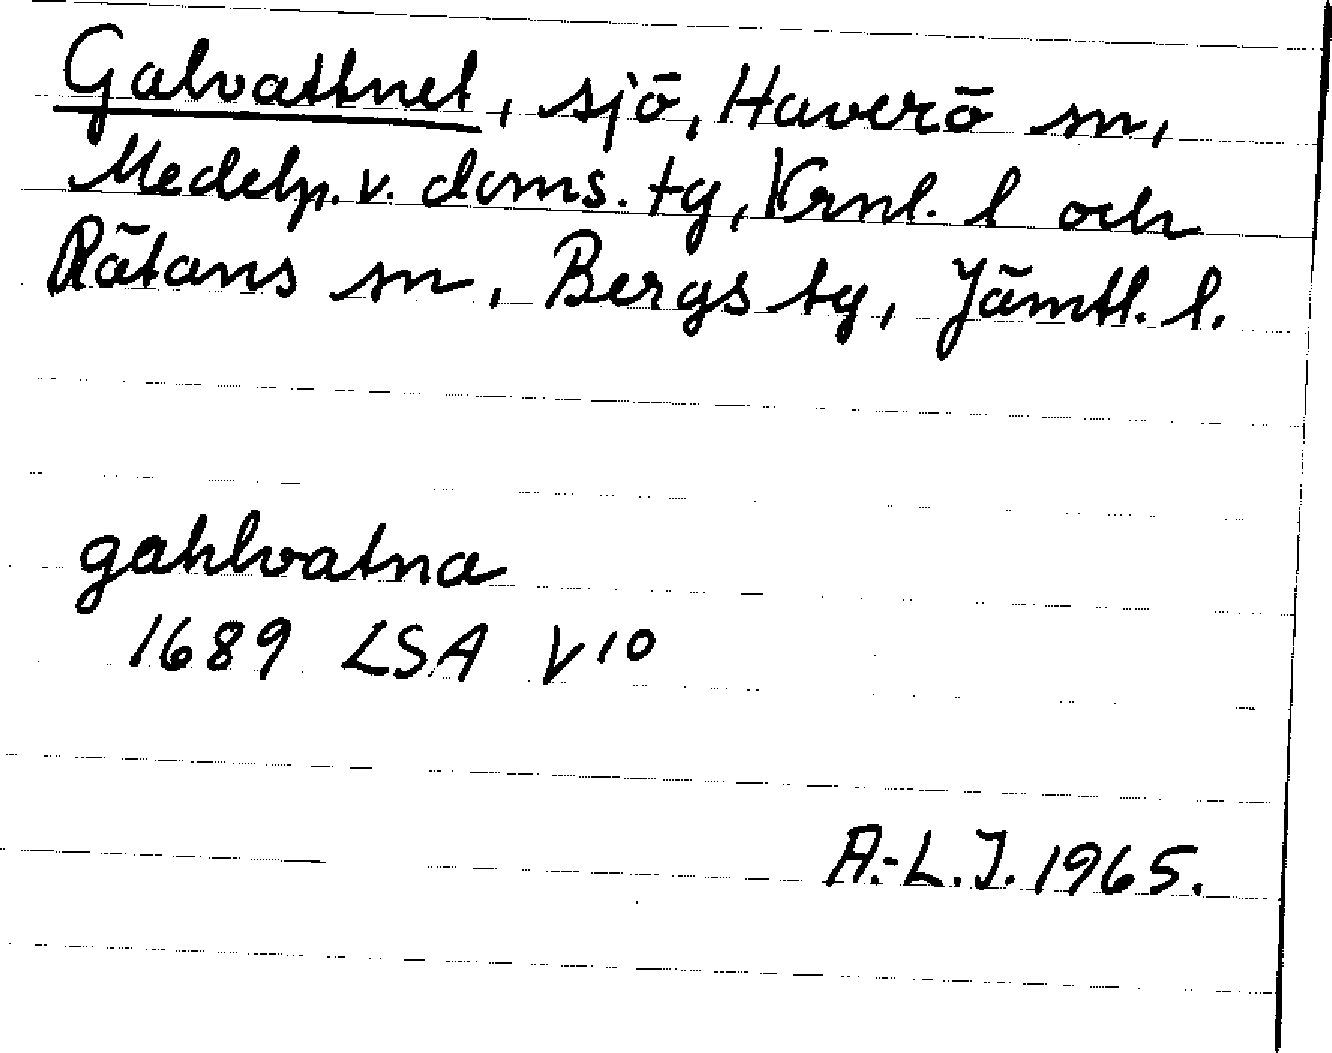 Galvattnet, sjö, Haverö sn,
Medelp. v. doms. tg, Vrnl. l och
Rätans sn, Bergs tg, Jämtl. l.
gahlvatna
1689 LSA V 10
A.-L.J. 1965.